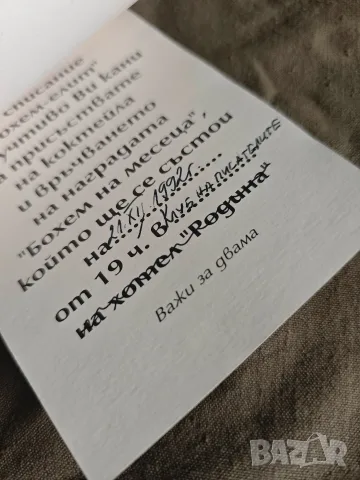 списание
"Бохем-елит"
учтиво Ви кани
да присъствате
на коктейла
и връчването
на наградата
"Бохем на месеца",
който ще се състои
на 21.XII.1992г.
от 19 ч. в КЛУБ НА ПИСАТЕЛИТЕ
на хотел "Родина"
Важи за двама
BAZAR